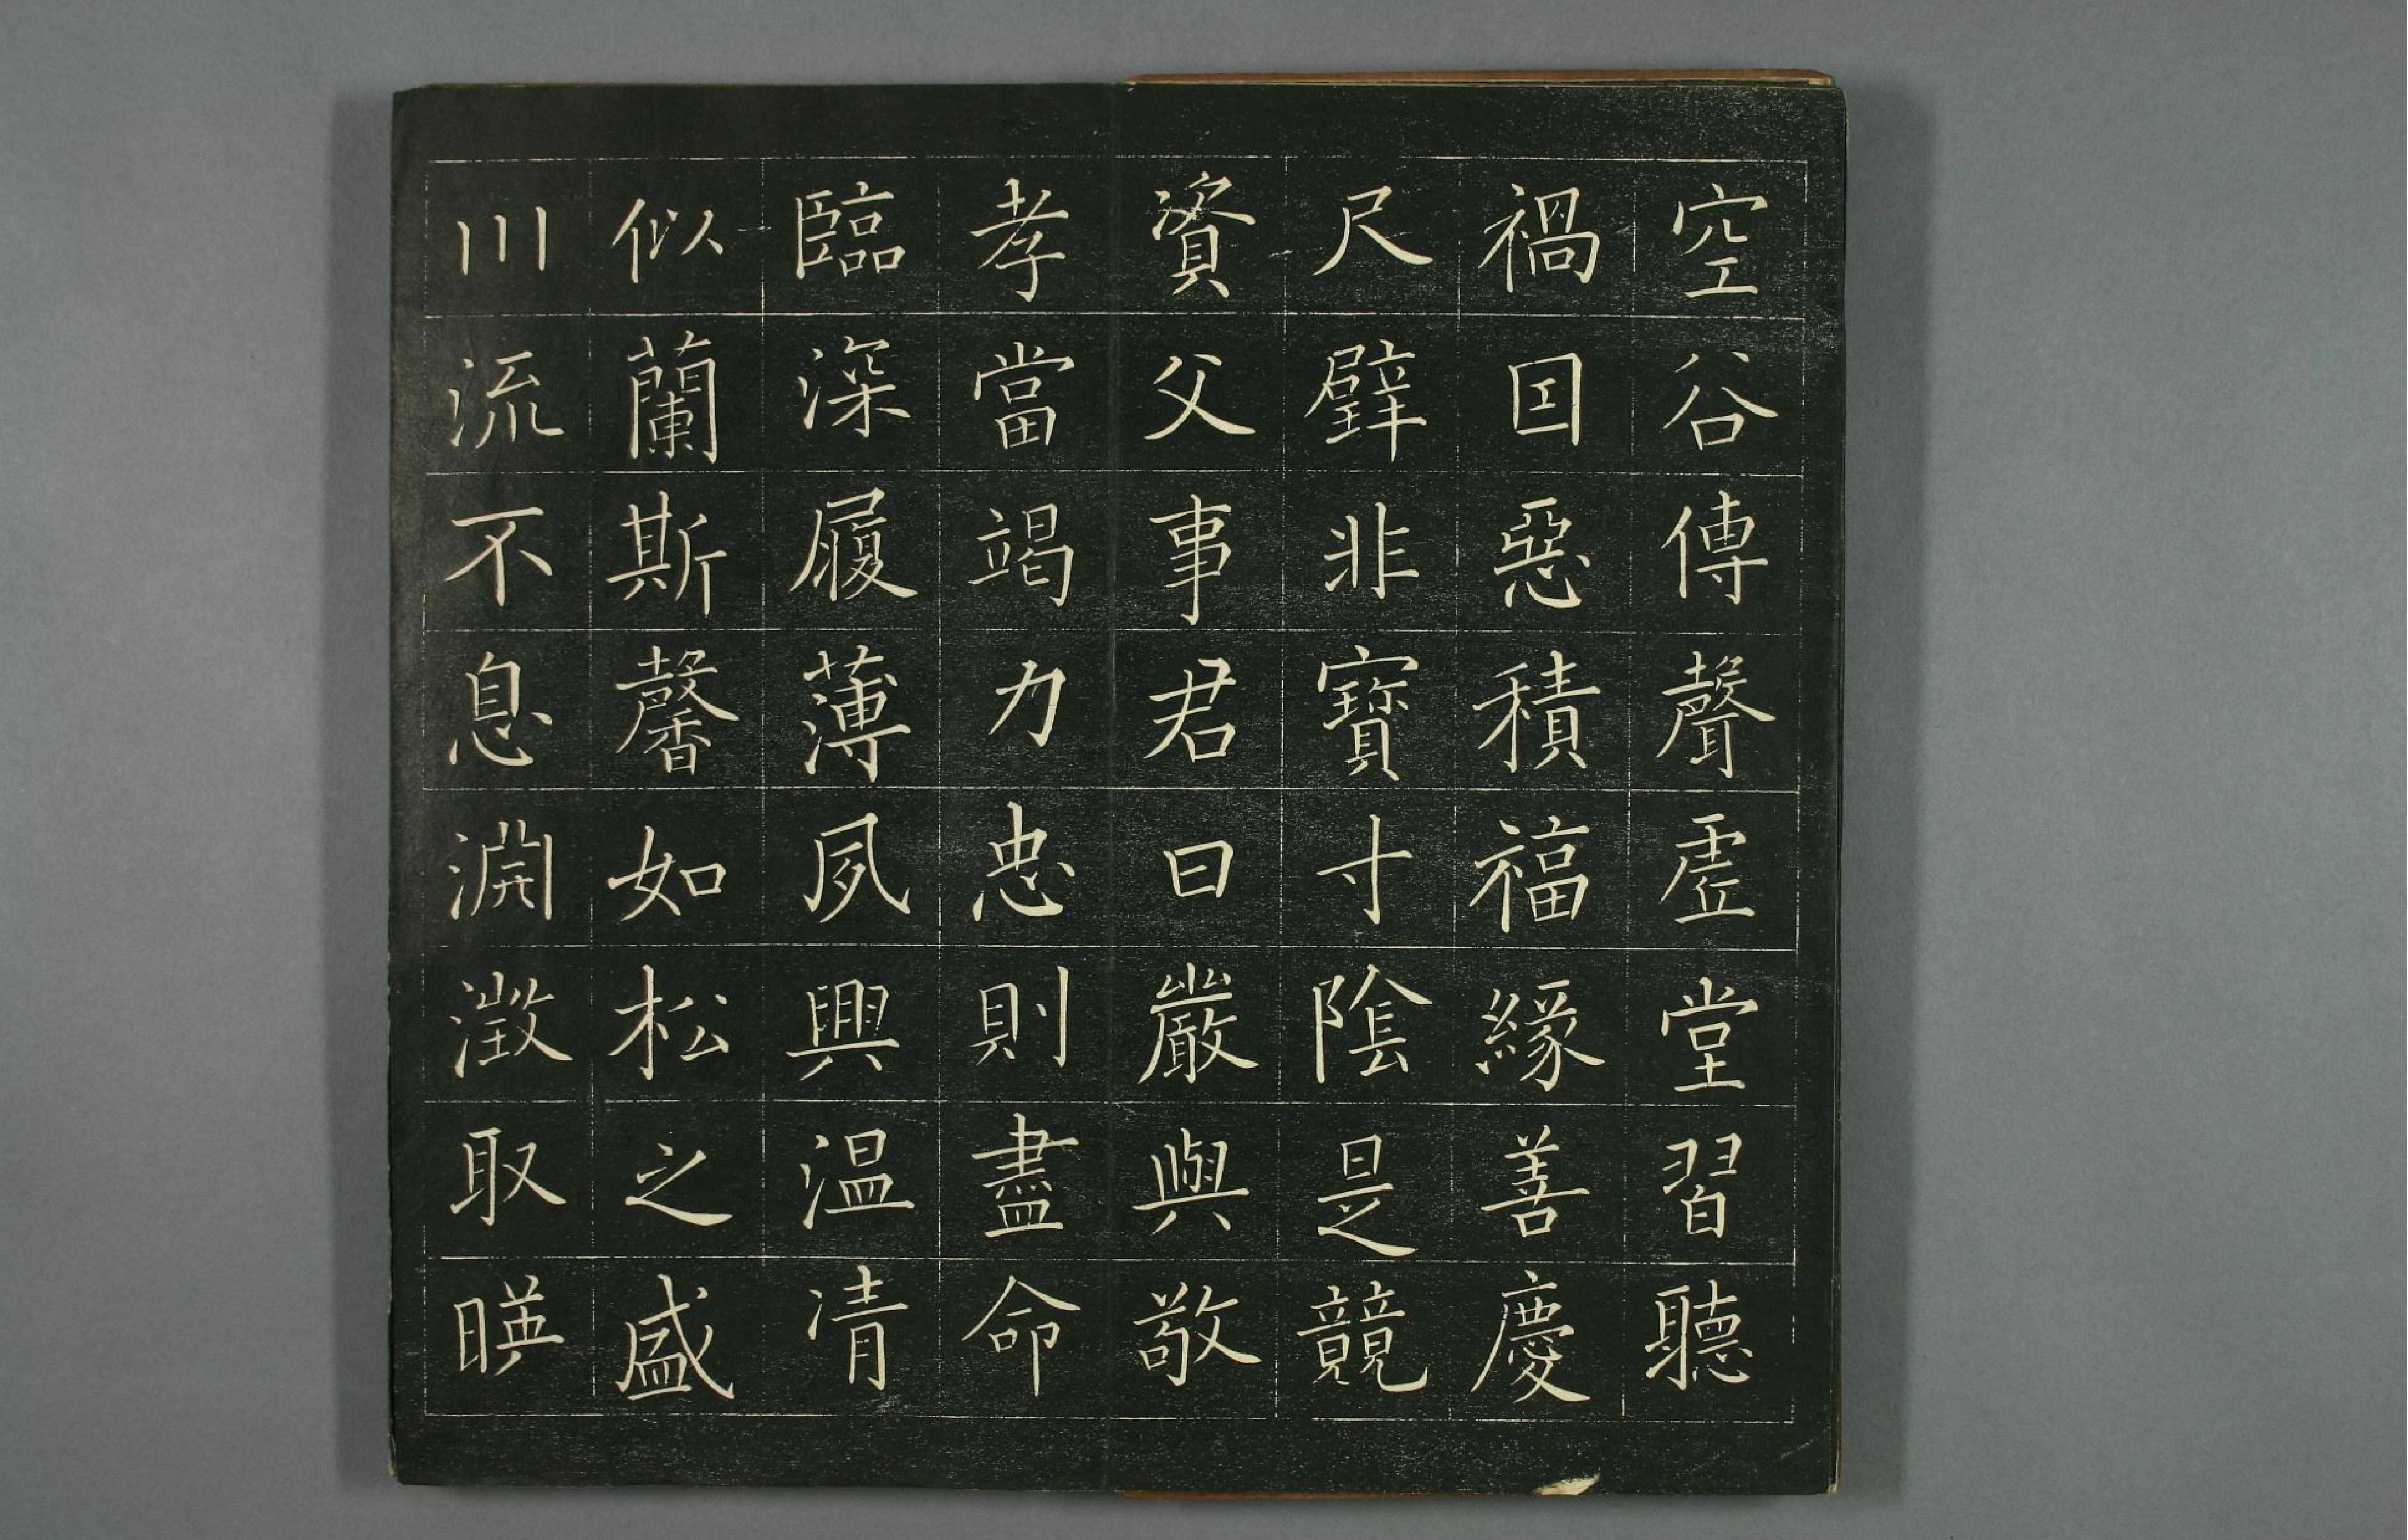 空谷傳聲虛堂習聽
禍因惡積福緣善慶
尺璧非寶寸陰是競
資父事君曰嚴與敬
孝當竭力忠則盡命
臨深履薄夙興温凊
似蘭斯馨如松之盛
川流不息淵澂取暎